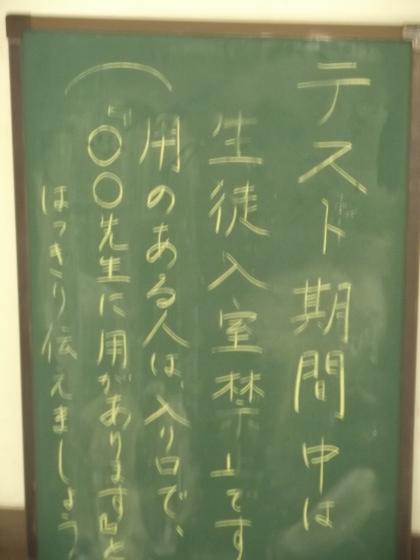 テスト期間中は
生徒入室禁止です
(用のある人は、入り口で、
『〇〇先生に用があります』と
はっきり伝えましょう